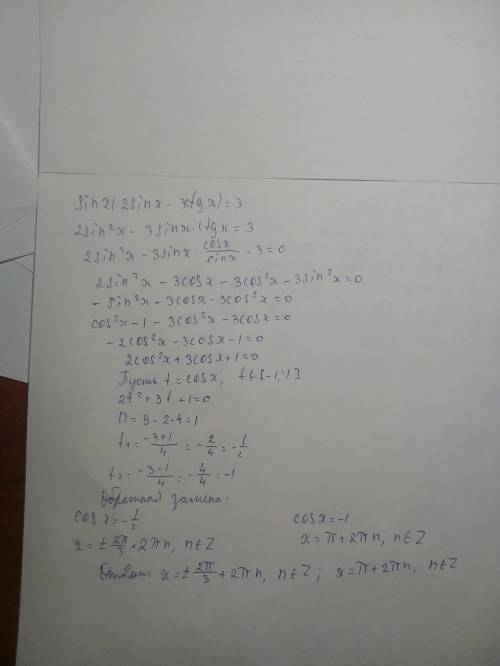 sin x(2sin x - 3ctg x) = 3
2sin²x - 3sin x · ctg x = 3
2sin²x - 3sin x · cos x / sin x - 3 = 0
2sin²x - 3cos x - 3cos²x - 3sin²x = 0
- sin²x - 3cos x - 3cos²x = 0
cos²x - 1 - 3cos²x - 3cos x = 0
- 2cos²x - 3cos x - 1 = 0
2cos²x + 3cos x + 1 = 0
Пусть t = cos x, t ∈ [-1; 1]
2t² + 3t + 1 = 0
D = 9 - 2·4 = 1
t₁ = (-3+1)/4 = -2/4 = -1/2
t₂ = (-3-1)/4 = -4/4 = -1
Обратная замена:
cos x = -1/2 cos x = -1
x = ± 2π/3 + 2πn, n ∈ Z x = π + 2πn, n ∈ Z
Ответ: x = ± 2π/3 + 2πn, n ∈ Z; x = π + 2πn, n ∈ Z